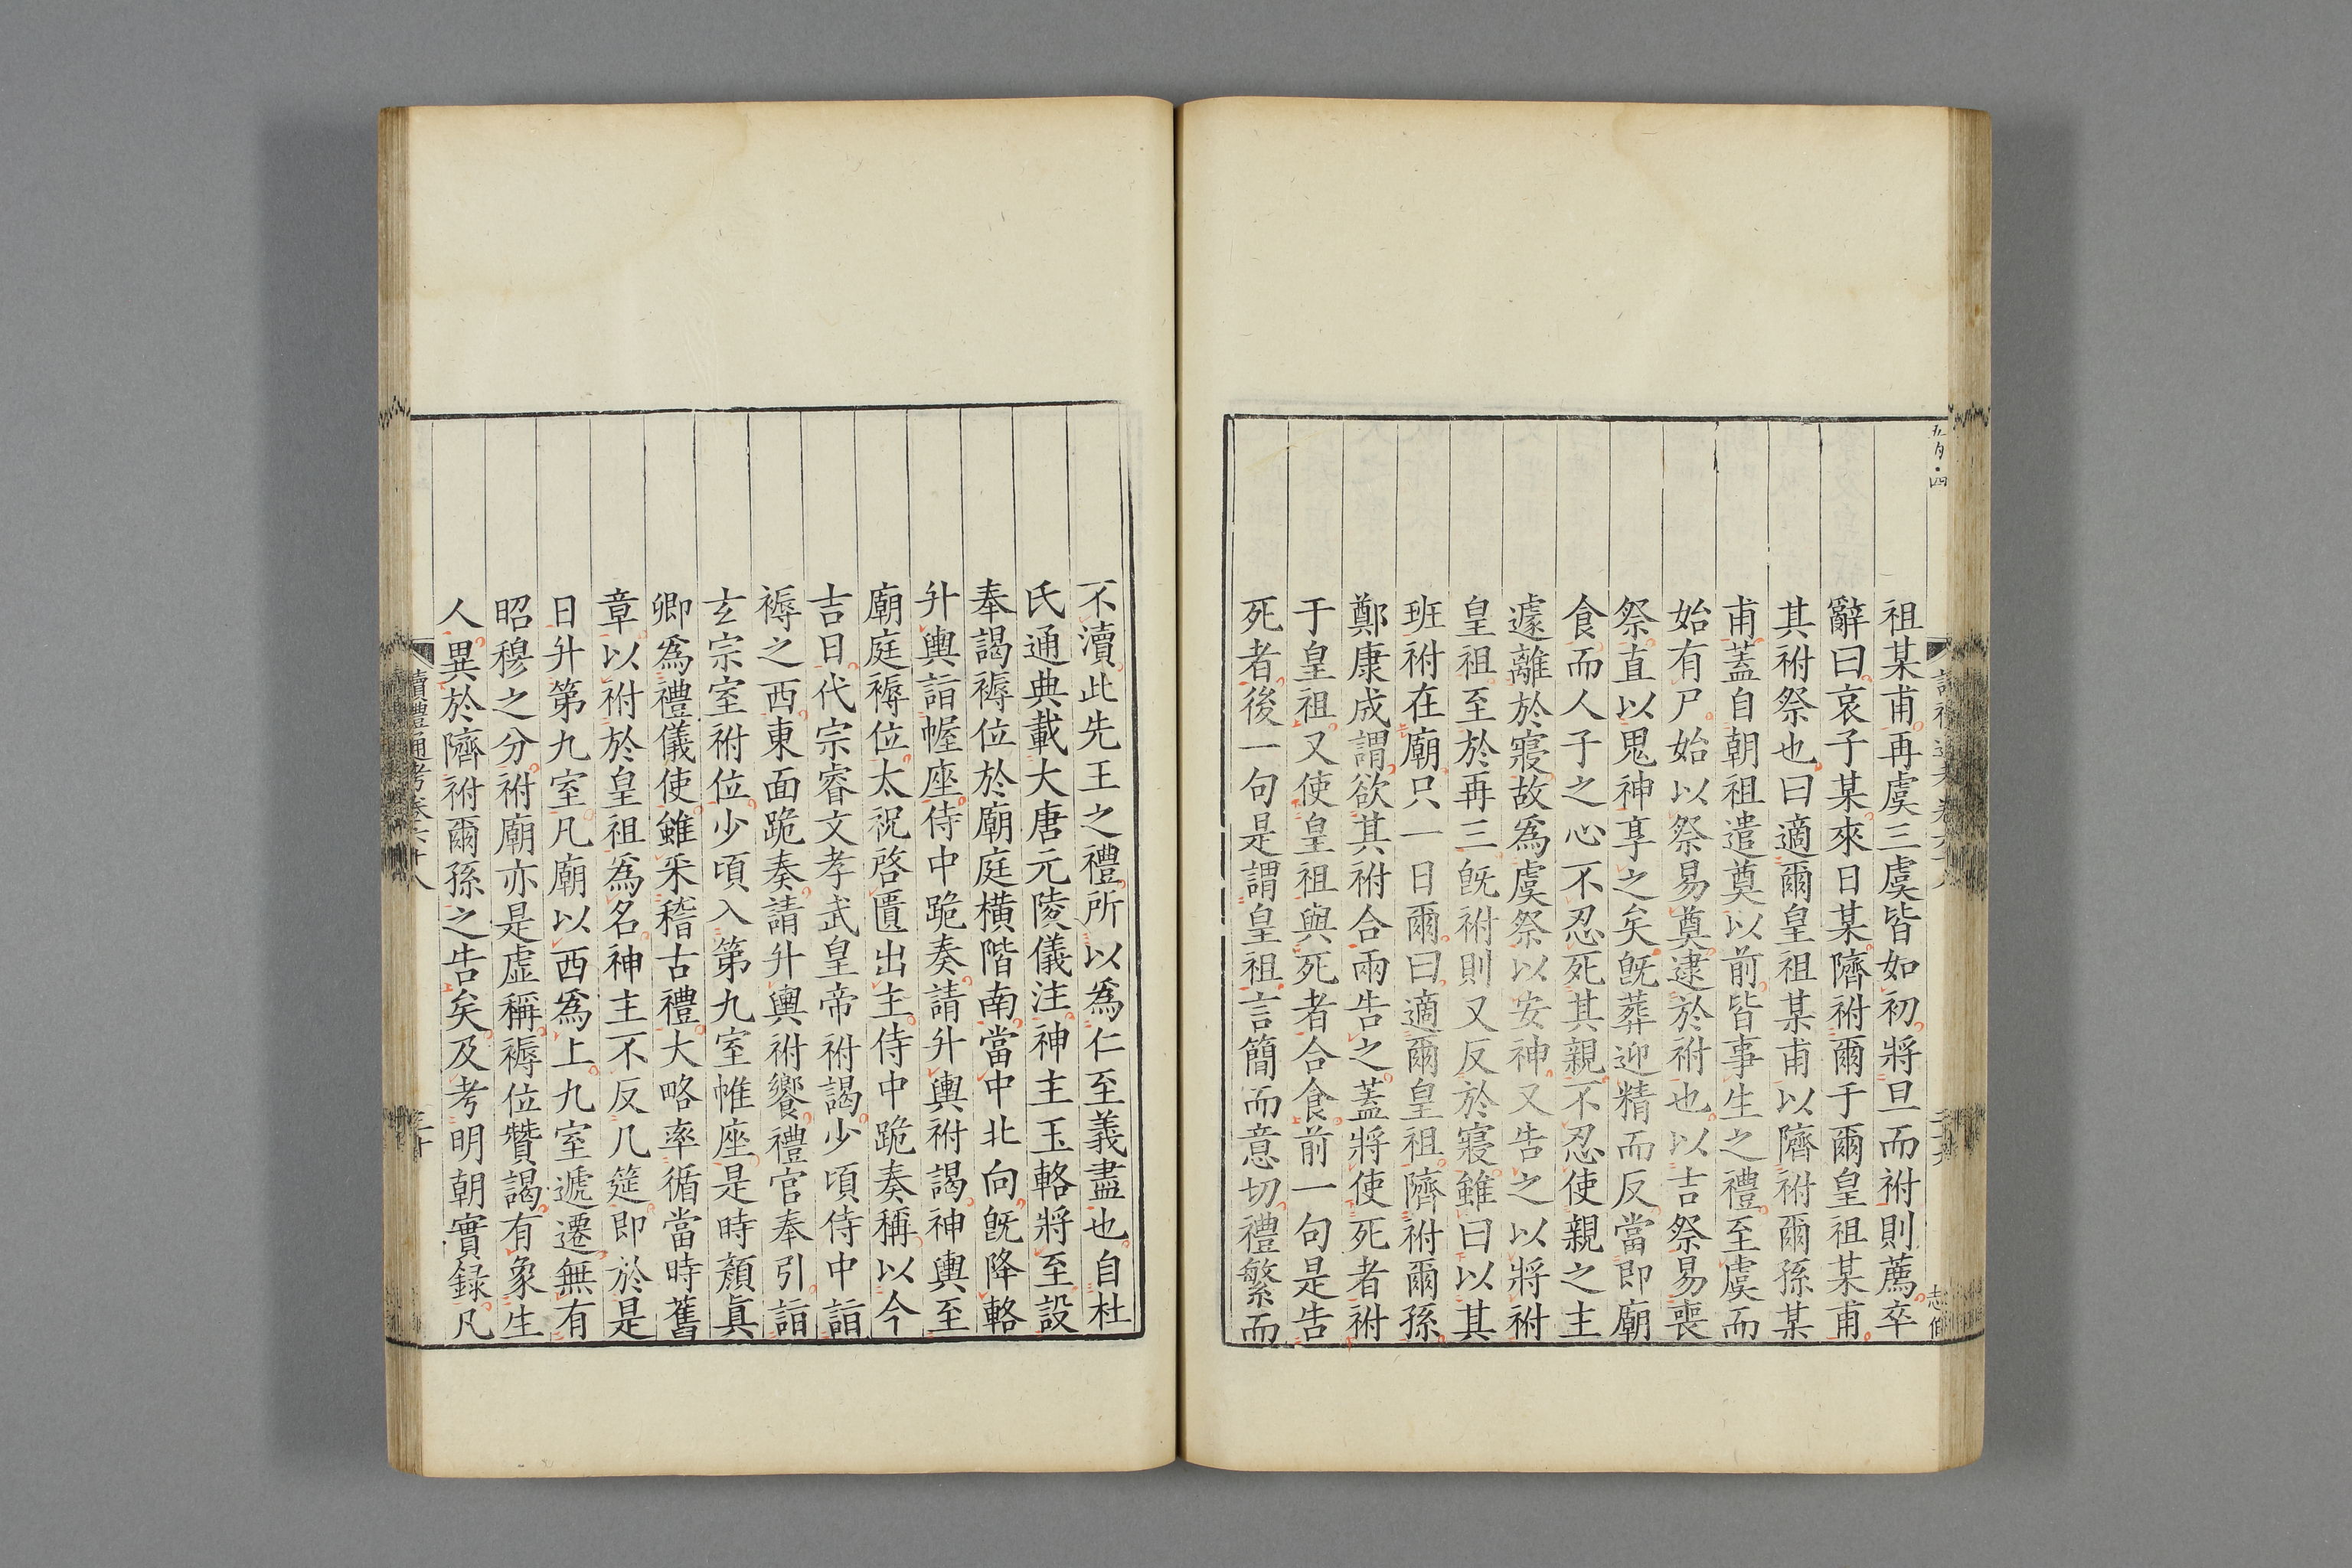 祖某甫再虞三虞皆如初將旦而祔則薦卒
辭曰哀子某來日某隮祔爾于爾皇祖某甫
其祔祭也曰適爾皇祖某甫以隮祔爾孫某
甫蓋自朝祖遣奠以前皆事生之禮至虞而
始有尸始以祭易奠逮於祔也以吉祭易喪
祭直以鬼神享之矣旣葬迎精而反當即廟
食而人子之心不忍死其親不忍使親之主
遽離於寢故爲虞祭以安神又告之以將祔
皇祖至於再三旣祔則又反於寢雖曰以其
班祔在廟只一日爾曰適爾皇祖隮祔爾孫
鄭康成謂欲其祔合兩告之蓋將使死者祔
于皇祖又使皇祖與死者合食前一句是告
死者後一句是謂皇祖言簡而意切禮繁而
不瀆此先王之禮所以爲仁至義盡也自杜
氏通典載大唐元陵儀注神主玉輅將至設
奉謁褥位於廟庭橫階南當中北向旣降輅
升輿詣幄座侍中跪奏請升輿祔謁神輿至
廟庭褥位太祝啓匱出主侍中跪奏稱以今
吉日代宗睿文孝武皇帝祔謁少頃侍中詣
褥之西東面跪奏請升輿祔饗禮官奉引詣
玄宗室祔位少頃入第九室帷座是時顏眞
卿爲禮儀使雖采稽古禮大略率循當時舊
章以祔於皇祖爲名神主不反几筵即於是
日升第九室凡廟以西爲上九室遞遷無有
昭穆之分祔廟亦是虛稱褥位贊謁有象生
人異於隮祔爾孫之告矣及考明朝實録凡
讀禮通考卷六十八